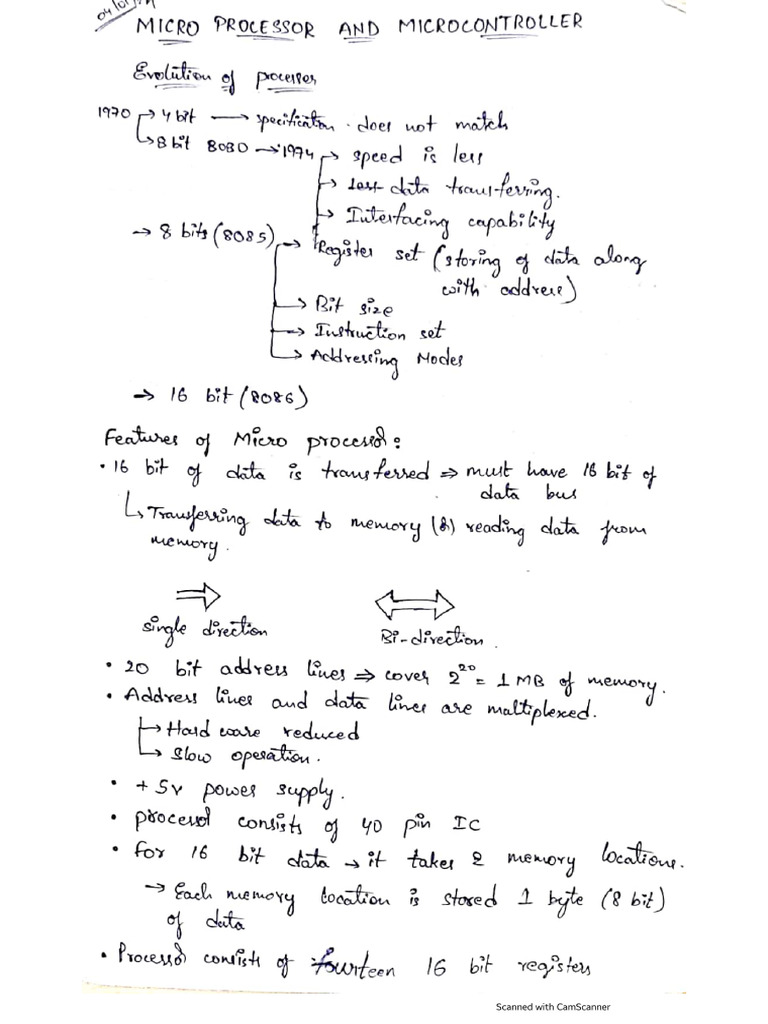 04/01/
MICRO PROCESSOR AND MICROCONTROLLER
Evolution of processor
1970 → 4 bit → specification does not match
→ 8 bit 8080 → 1974 → speed is less
→ Less data transferring.
→ Interfacing capability
→ 8 bits (8085) → Register set (storing of data along
with address)
→ Bit size
→ Instruction set
→ Addressing Modes
→ 16 bit (8086)
Features of Micro processor:
• 16 bit of data is transferred ⇒ must have 16 bit of
data bus
↳ Transferring data to memory (&) reading data from
memory.
single direction Bi-direction.
• 20 bit address lines ⇒ cover 2^20 = 1 MB of memory.
• Address lines and data lines are multiplexed.
→ Hard ware reduced
→ Slow operation.
• +5v power supply.
• processor consists of 40 pin IC
• for 16 bit data → it takes 2 memory locations.
→ Each memory location is stored 1 byte (8 bit)
of data
• Processor consists of fourteen 16 bit registers
Scanned with CamScanner